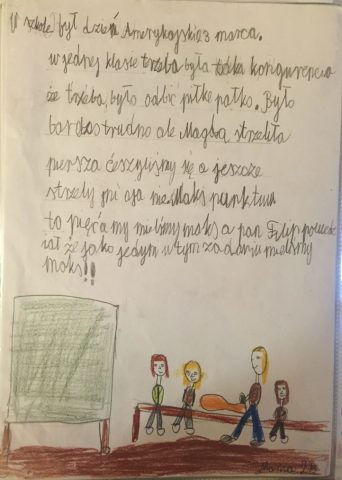 W szkole był dzień Amerykajskie 3 marca.
w jednej klasie trzeba była taka kongurencja
że trzeba było odbić piłke pałką. Było
bardostrudno ale Magda strzeliła
persza ćeszyliśmy się a jeszcze
strzely mi
to pięćamy mieliśmy maks a pan Filip powiedz
iał że jako jedym w tym zadaniu mieliśmy
maks!!